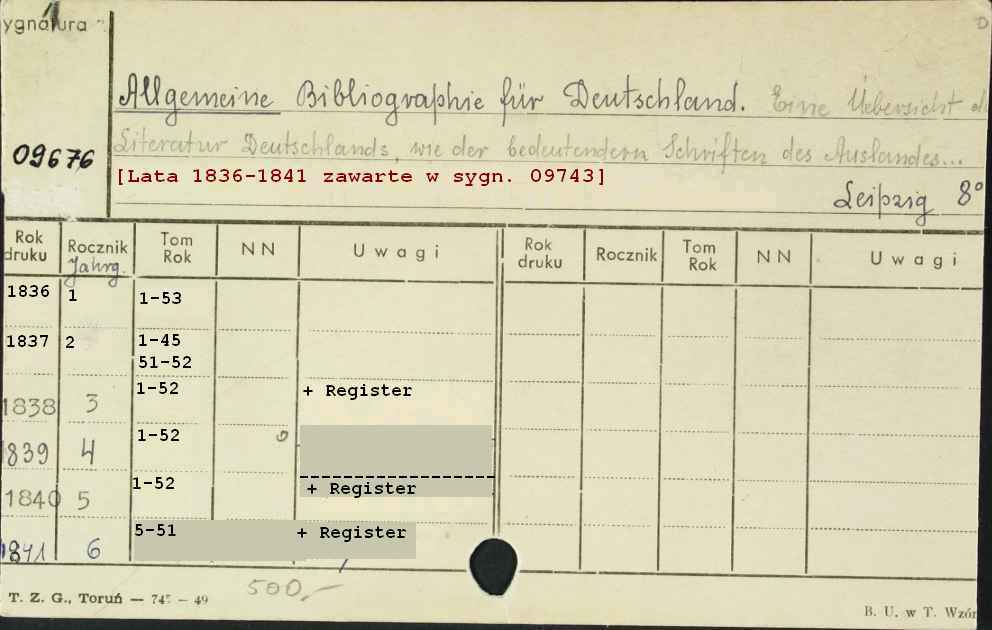 ygnatura
D
Allgemeine Bibliographie für Deutschland. Eine Uebersicht
09676
Literatur Deutschlands, wie der bedeutendern Schriften des Auslandes...
[Lata 1836-1841 zawarte w sygn. 09743]
Leipzig 8°
Rok druku Rocznik Jahrg. Tom Rok NN Uwagi Rok druku Rocznik Tom Rok NN Uwagi
1836 1 1-53
1837 2 1-45
51-52
1838 3 1-52 + Register
1839 4 1-52
1840 5 1-52 + Register
1841 6 5-51 + Register
500,-
T. Z. G., Toruń — 745 — 49
B. U. w T. Wzór